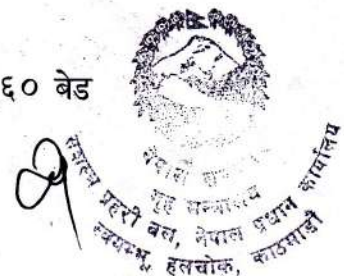 ६० बेड
नेपाल सरकार
गृह मन्त्रालय
सशस्त्र प्रहरी बल, नेपाल प्रधान कार्यालय
स्वयम्भू, हलचोक, काठमाडौं